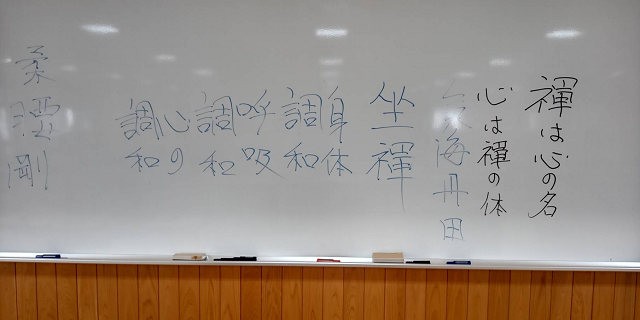 禪は心の名
心は禪の体
海丹田
坐禪
身体
調和
呼吸
調和
心の
調和
柔 剛